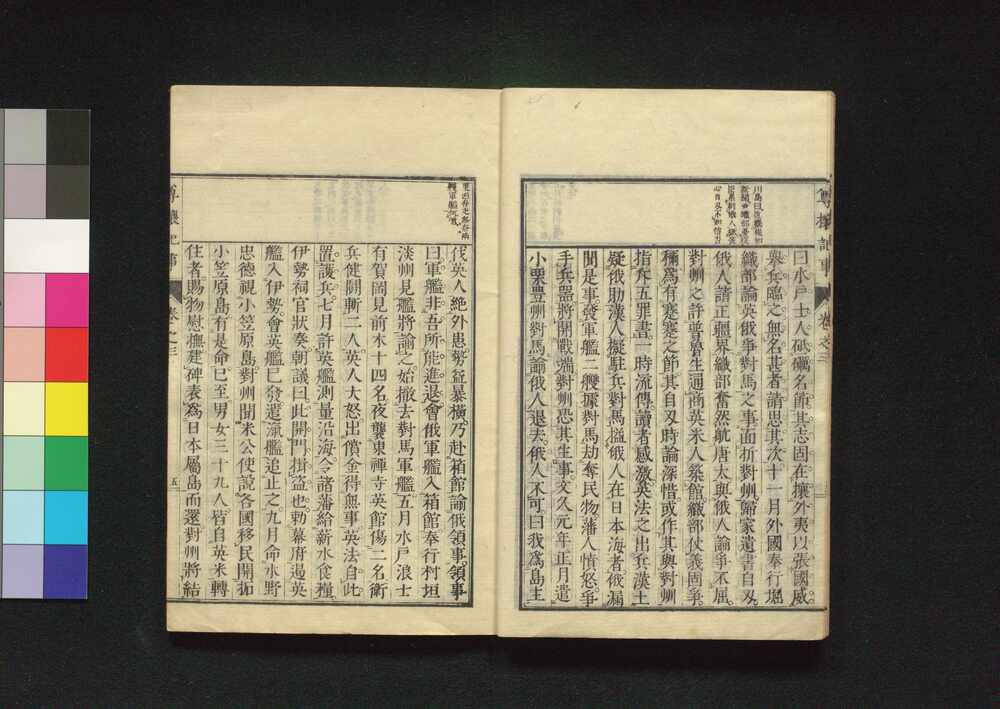 尊攘記事 卷之三
曰水戶士人砥礪名節其志固在攘外夷以張國威
與兵臨之無名甚者請思其次十一月外國奉行堀
織部論英俄爭對馬之事面折對州歸家遺書自刄
俄人請正疆界織部奮然航唐太與俄人論爭不屈
對州之許普魯生通商英米人築館織部仗義固爭
稱爲有蹇蹇之節其自刄時論深惜或作其與對州
指斥五罪書一時流傳讀者感激英法之出兵漢土
疑俄助漢人擬駐兵對馬搤俄人在日本海者俄漏
聞是事發軍艦二艘據對馬劫奪民物藩人憤怒爭
手兵器將開戰端對州恐其生事文久元年正月遣
小栗豊州徇馬諭俄人退去俄人不可曰我爲島主
伐英人絶外患勢益暴橫乃赴箱館諭俄領事領事
曰軍艦非吾所能進退會俄軍艦入箱館奉行村垣
淡州見艦將諭之始撤去對馬軍艦五月水戶浪士
有賀岡見前木十四名夜襲東禪寺英館傷二名衛
兵健鬪斬二人英人大怒出償金得無事英法自此
置護兵七月許英艦測量沿海令諸藩給薪水食糧
伊勢祠官狀奏朝議曰此開門揖盜也勅幕府遏英
艦入伊勢會英艦已發遣藩艦追止之九月命水野
忠德視小笠原島對州聞米公使說各國移民開拓
小笠原島有是命已至男女三十九人皆自英米轉
住者賜物慰撫建碑表爲日本屬島而還對州將結
五